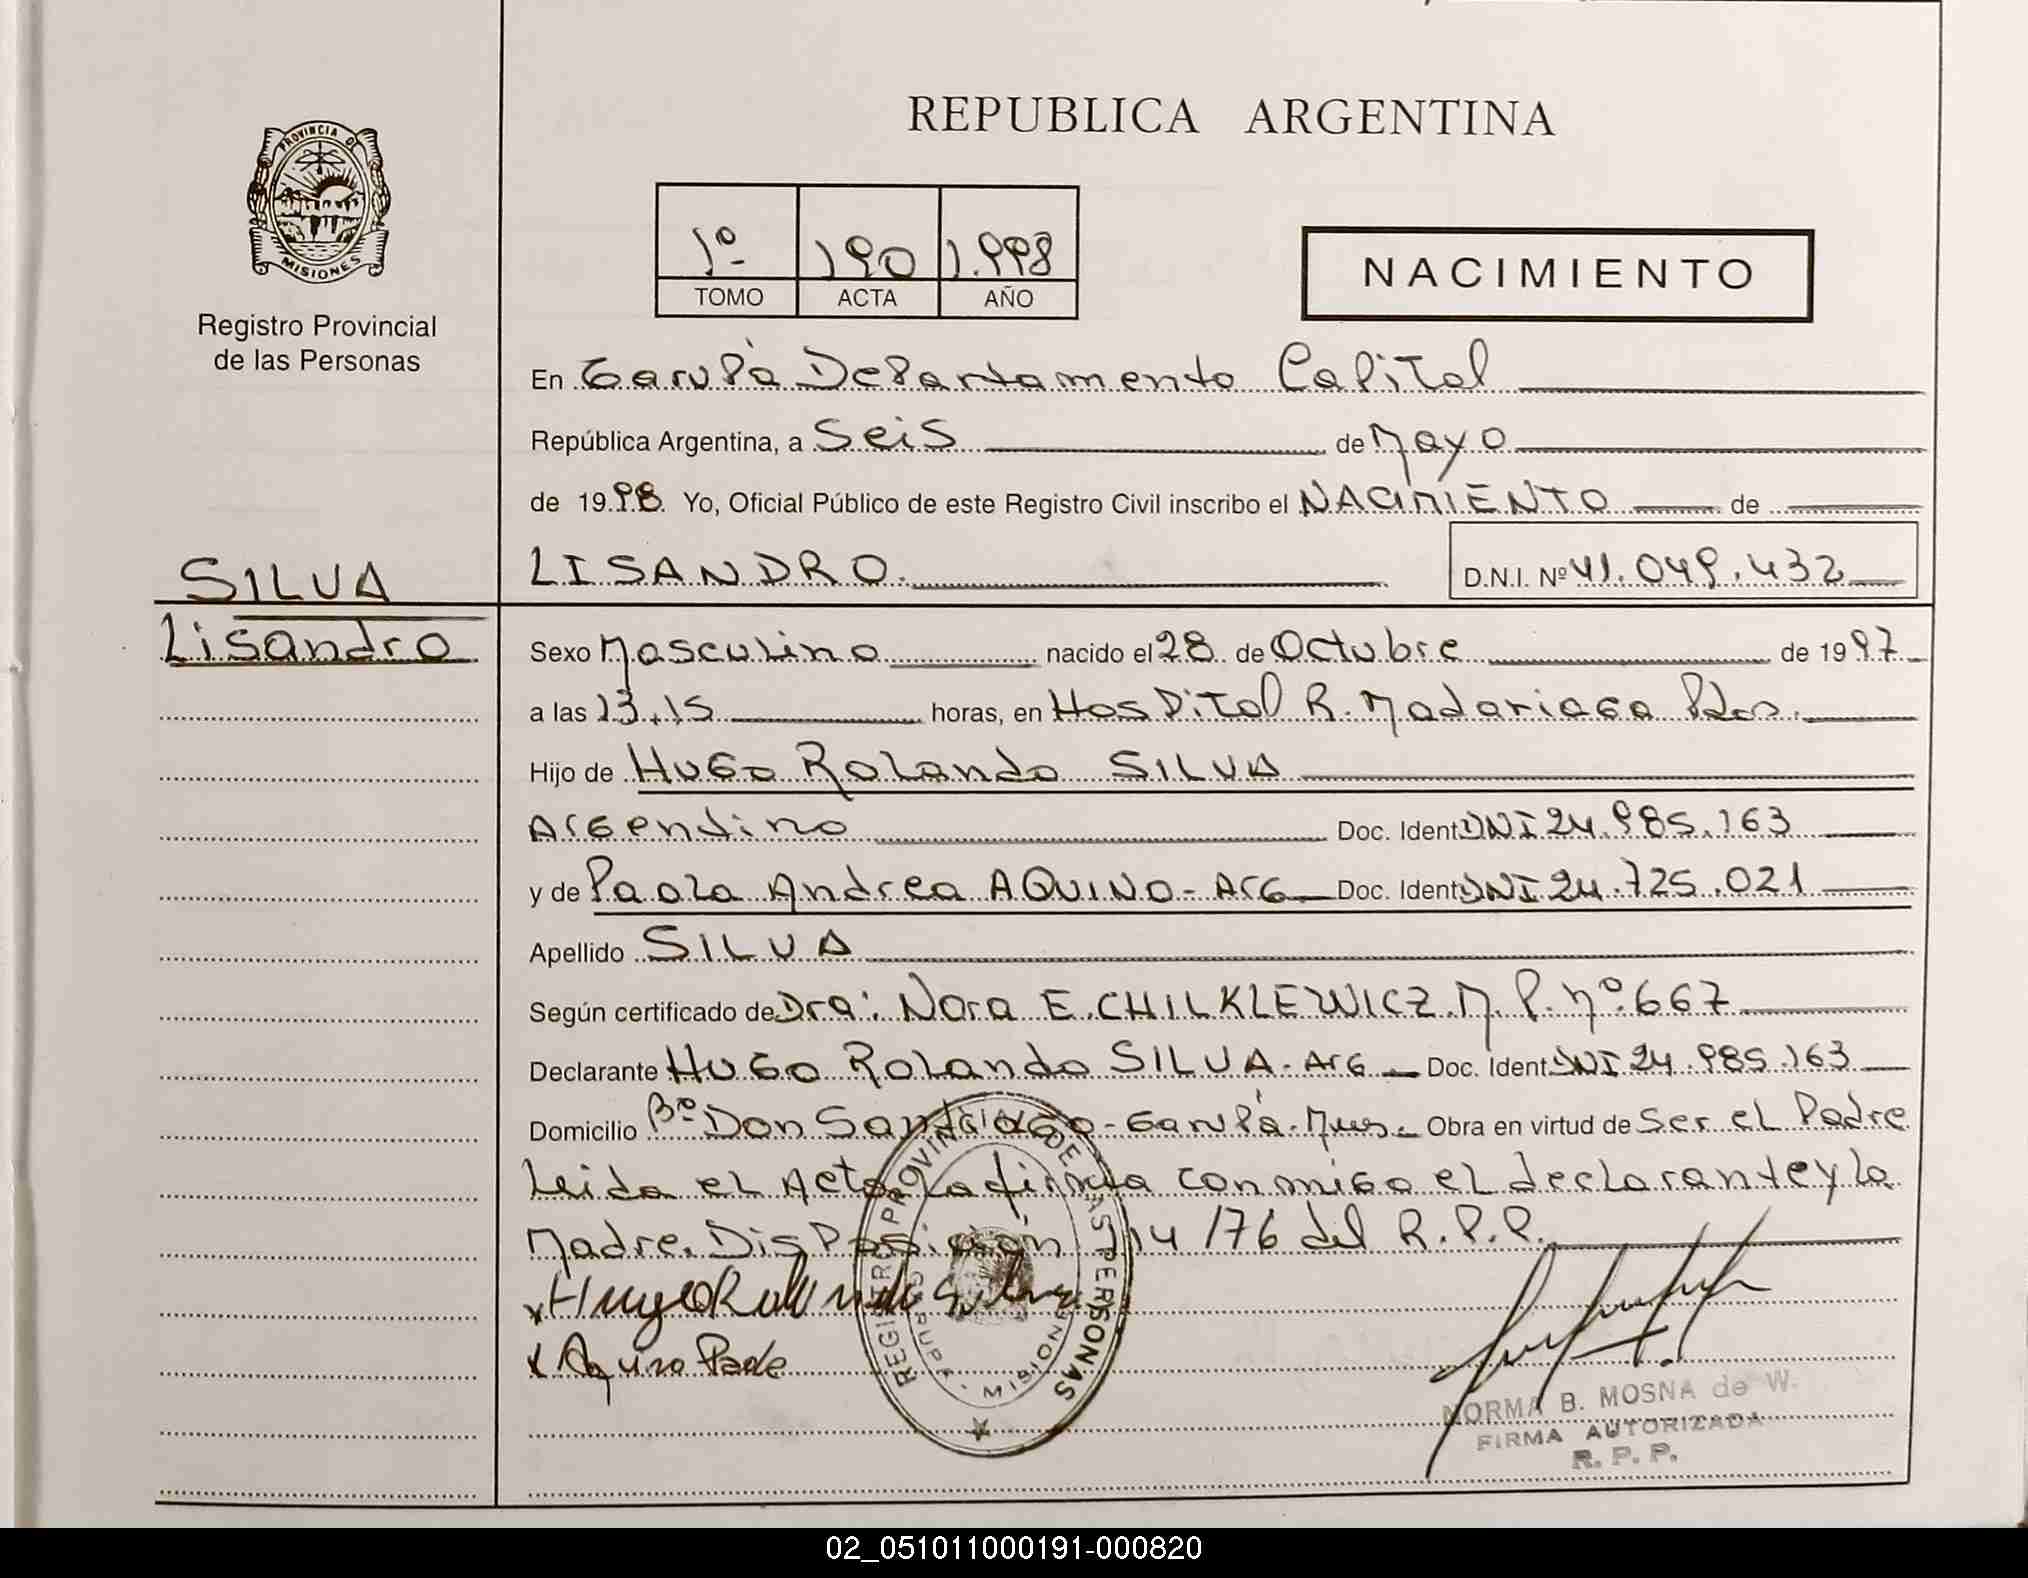 REPUBLICA ARGENTINA
PROVINCIA DE
MISIONES
Registro Provincial
de las Personas
1º 190 1.998
TOMO ACTA AÑO
NACIMIENTO
En Garupá Departamento Capital
República Argentina, a Seis de Mayo
de 1998 Yo, Oficial Público de este Registro Civil inscribo el NACIMIENTO de
SILVA
LISANDRO. D.N.I. Nº 41.049.432
Lisandro
Sexo Masculino nacido el 28 de Octubre de 1997
a las 13,15 horas, en Hospital R. Madariaga Pdas.
Hijo de Hugo Rolando SILVA
Argentino Doc. Ident DNI 24.985.163
y de Paola Andrea AQUINO - Arg Doc. Ident DNI 24.725.021
Apellido SILVA
Según certificado de Dra: Nora E. CHILKLEWICZ. M.P. Nº 667
Declarante Hugo Rolando SILVA - Arg Doc. Ident DNI 24.985.163
Domicilio Bº Don Santiago - Garupá - Mnes. Obra en virtud de Ser el Padre
Leida el Acta, la firma conmigo el declarante y la
Madre. Disposición 114/76 del R.P.P.
x Hugo Rolando Silva
x Aquino Paola
REGISTRO PROVINCIAL DE LAS PERSONAS
GARUPA - MISIONES
NORMA B. MOSNA de W.
FIRMA AUTORIZADA
R. P. P.
02_051011000191-000820